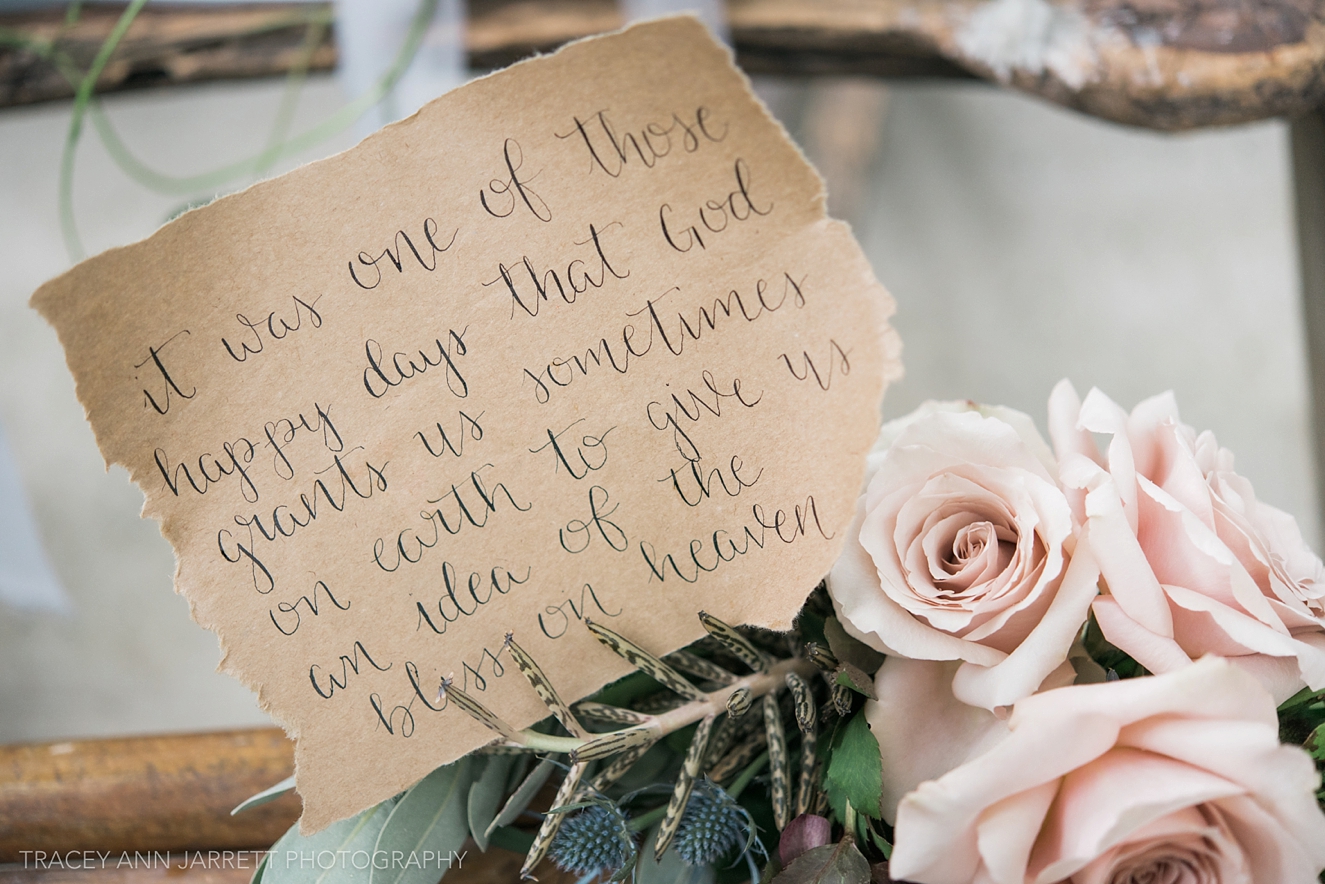 it was one of those
happy days that God
grants us sometimes
on earth to give us
an idea of the
bliss on heaven
TRACEY ANN JARRETT PHOTOGRAPHY